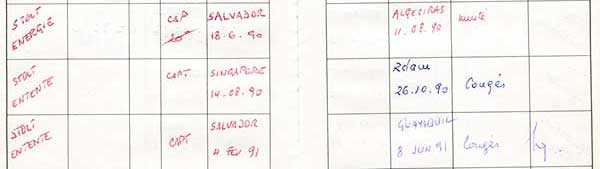 STOLT ENERGIE CAP SALVADOR 18.6.90 ALGECIRAS 11.08.90 muté
STOLT ENTENTE CAPT SINGAPORE 14.08.90 Rdam 26.10.90 Congés
STOLT ENTENTE CAPT SALVADOR 4 FEV 91 GUAYAQUIL 8 JUN 91 Congés